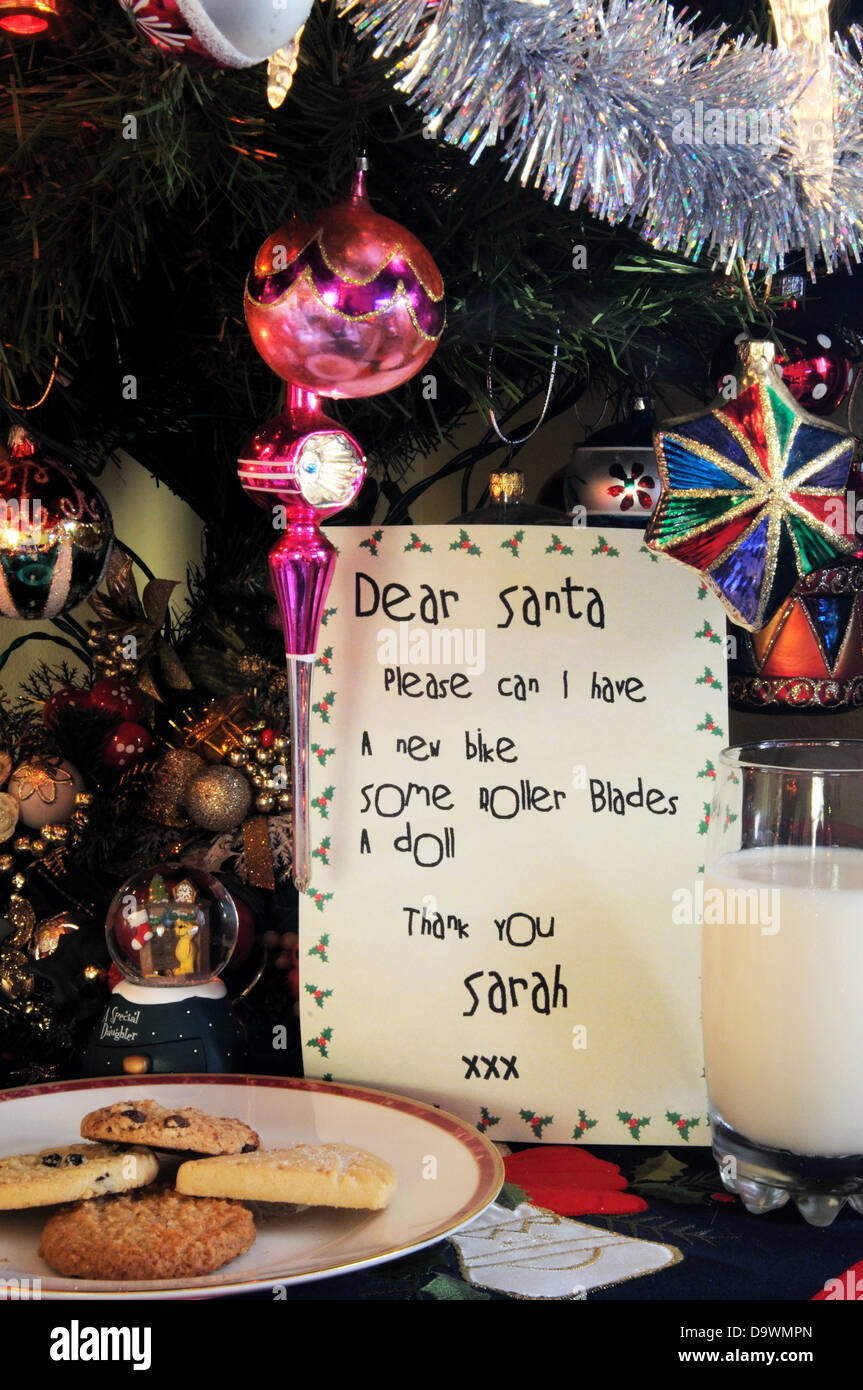 Dear Santa
Please can I have
A new bike
Some Roller Blades
A doll
Thank You
Sarah
xxx
A Special
Daughter
alamy
Image ID: D9WMPN
www.alamy.com